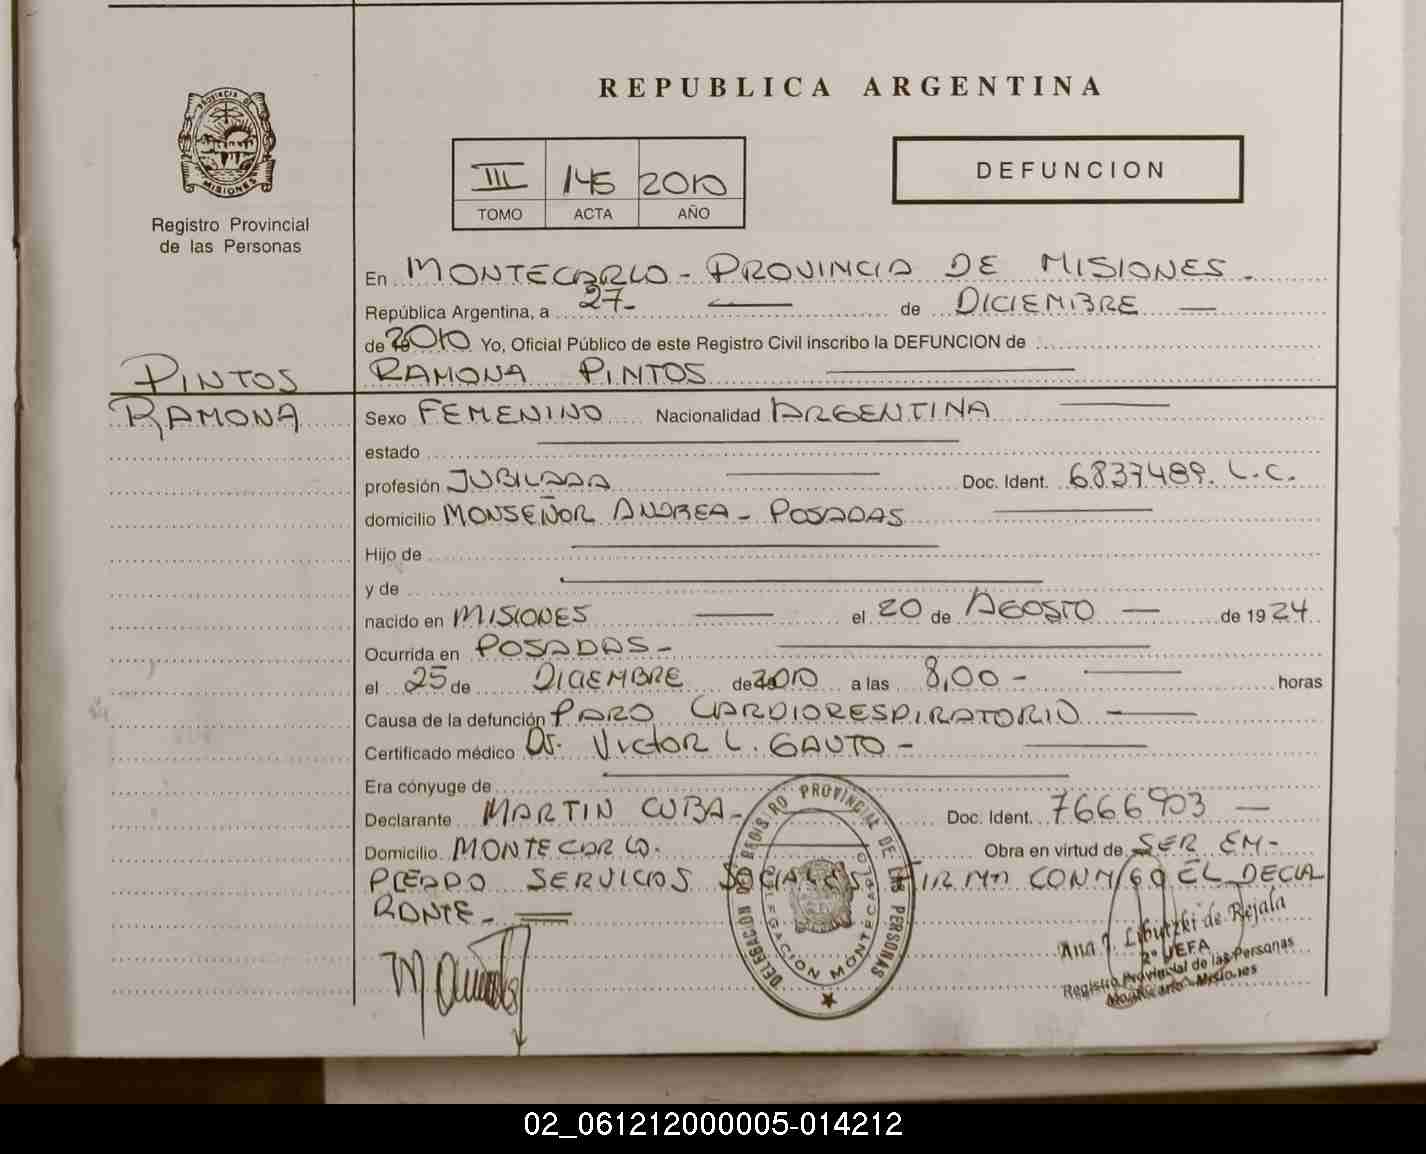 REPUBLICA ARGENTINA
PROVINCIA DE
MISIONES
Registro Provincial
de las Personas
III 145 2010
TOMO ACTA AÑO
DEFUNCION
En MONTECARLO - PROVINCIA DE MISIONES -
República Argentina, a 27- de DICIEMBRE
de 2010 Yo, Oficial Público de este Registro Civil inscribo la DEFUNCION de
RAMONA PINTOS
PINTOS
RAMONA
Sexo FEMENINO Nacionalidad ARGENTINA
estado
profesión JUBILADA Doc. Ident. 6837489. L.C.
domicilio MONSEÑOR ANDREA - POSADAS
Hijo de
y de
nacido en MISIONES el 20 de AGOSTO de 1924
Ocurrida en POSADAS -
el 25 de DICIEMBRE de 2010 a las 8,00 - horas
Causa de la defunción PARO CARDIORESPIRATORIO -
Certificado médico Dr. VICTOR L. GAUTO -
Era cónyuge de
Declarante MARTIN CUBA - Doc. Ident. 7666903
Domicilio MONTECARLO. Obra en virtud de SER EM-
PLEADO SERVICIOS SOCIALES FIRMA CONMIGO EL DECLA
RANTE -
DELEGACION DE REGISTRO PROVINCIAL DE LAS PERSONAS
DELEGACION MONTECARLO
Ana J. Libutzki de Rejala
2º JEFA
Registro Provincial de las Personas
Montecarlo - Misiones
02_061212000005-014212